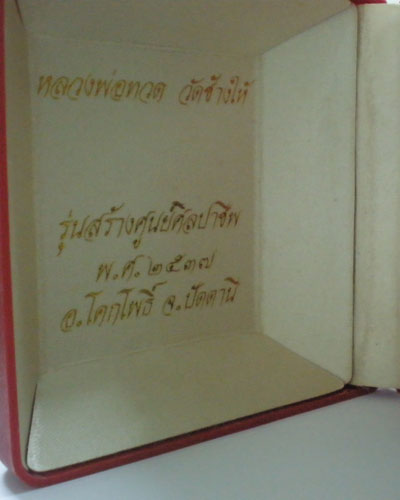 หลวงพ่อทวด วัดช้างให้
รุ่นสร้างศูนย์ศิลปาชีพ
พ.ศ.๒๕๓๗
อ.โคกโพธิ์ จ.ปัตตานี